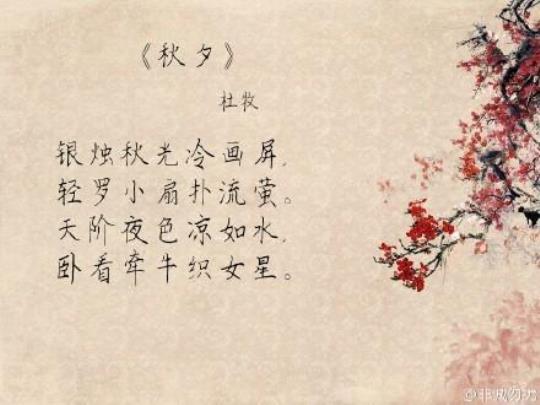 《秋夕》
杜牧
银烛秋光冷画屏,
轻罗小扇扑流萤。
天阶夜色凉如水,
卧看牵牛织女星。